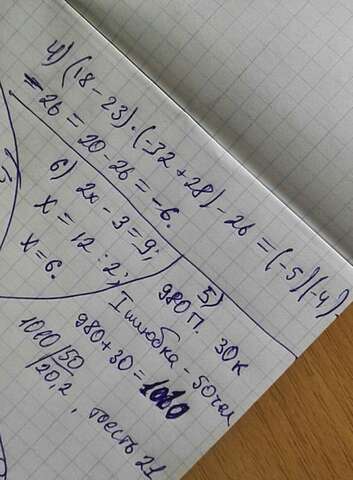 4) (18-23)·(-32+28)-26=(-5)(-4)
-26=20-26=-6.
6) 2x-3=9;
x=12:2;
x=6.
5)
980 п. 30к
1 шлюбка - 50 чел
980+30=1010
1010 |50
20,2, тоесть 21